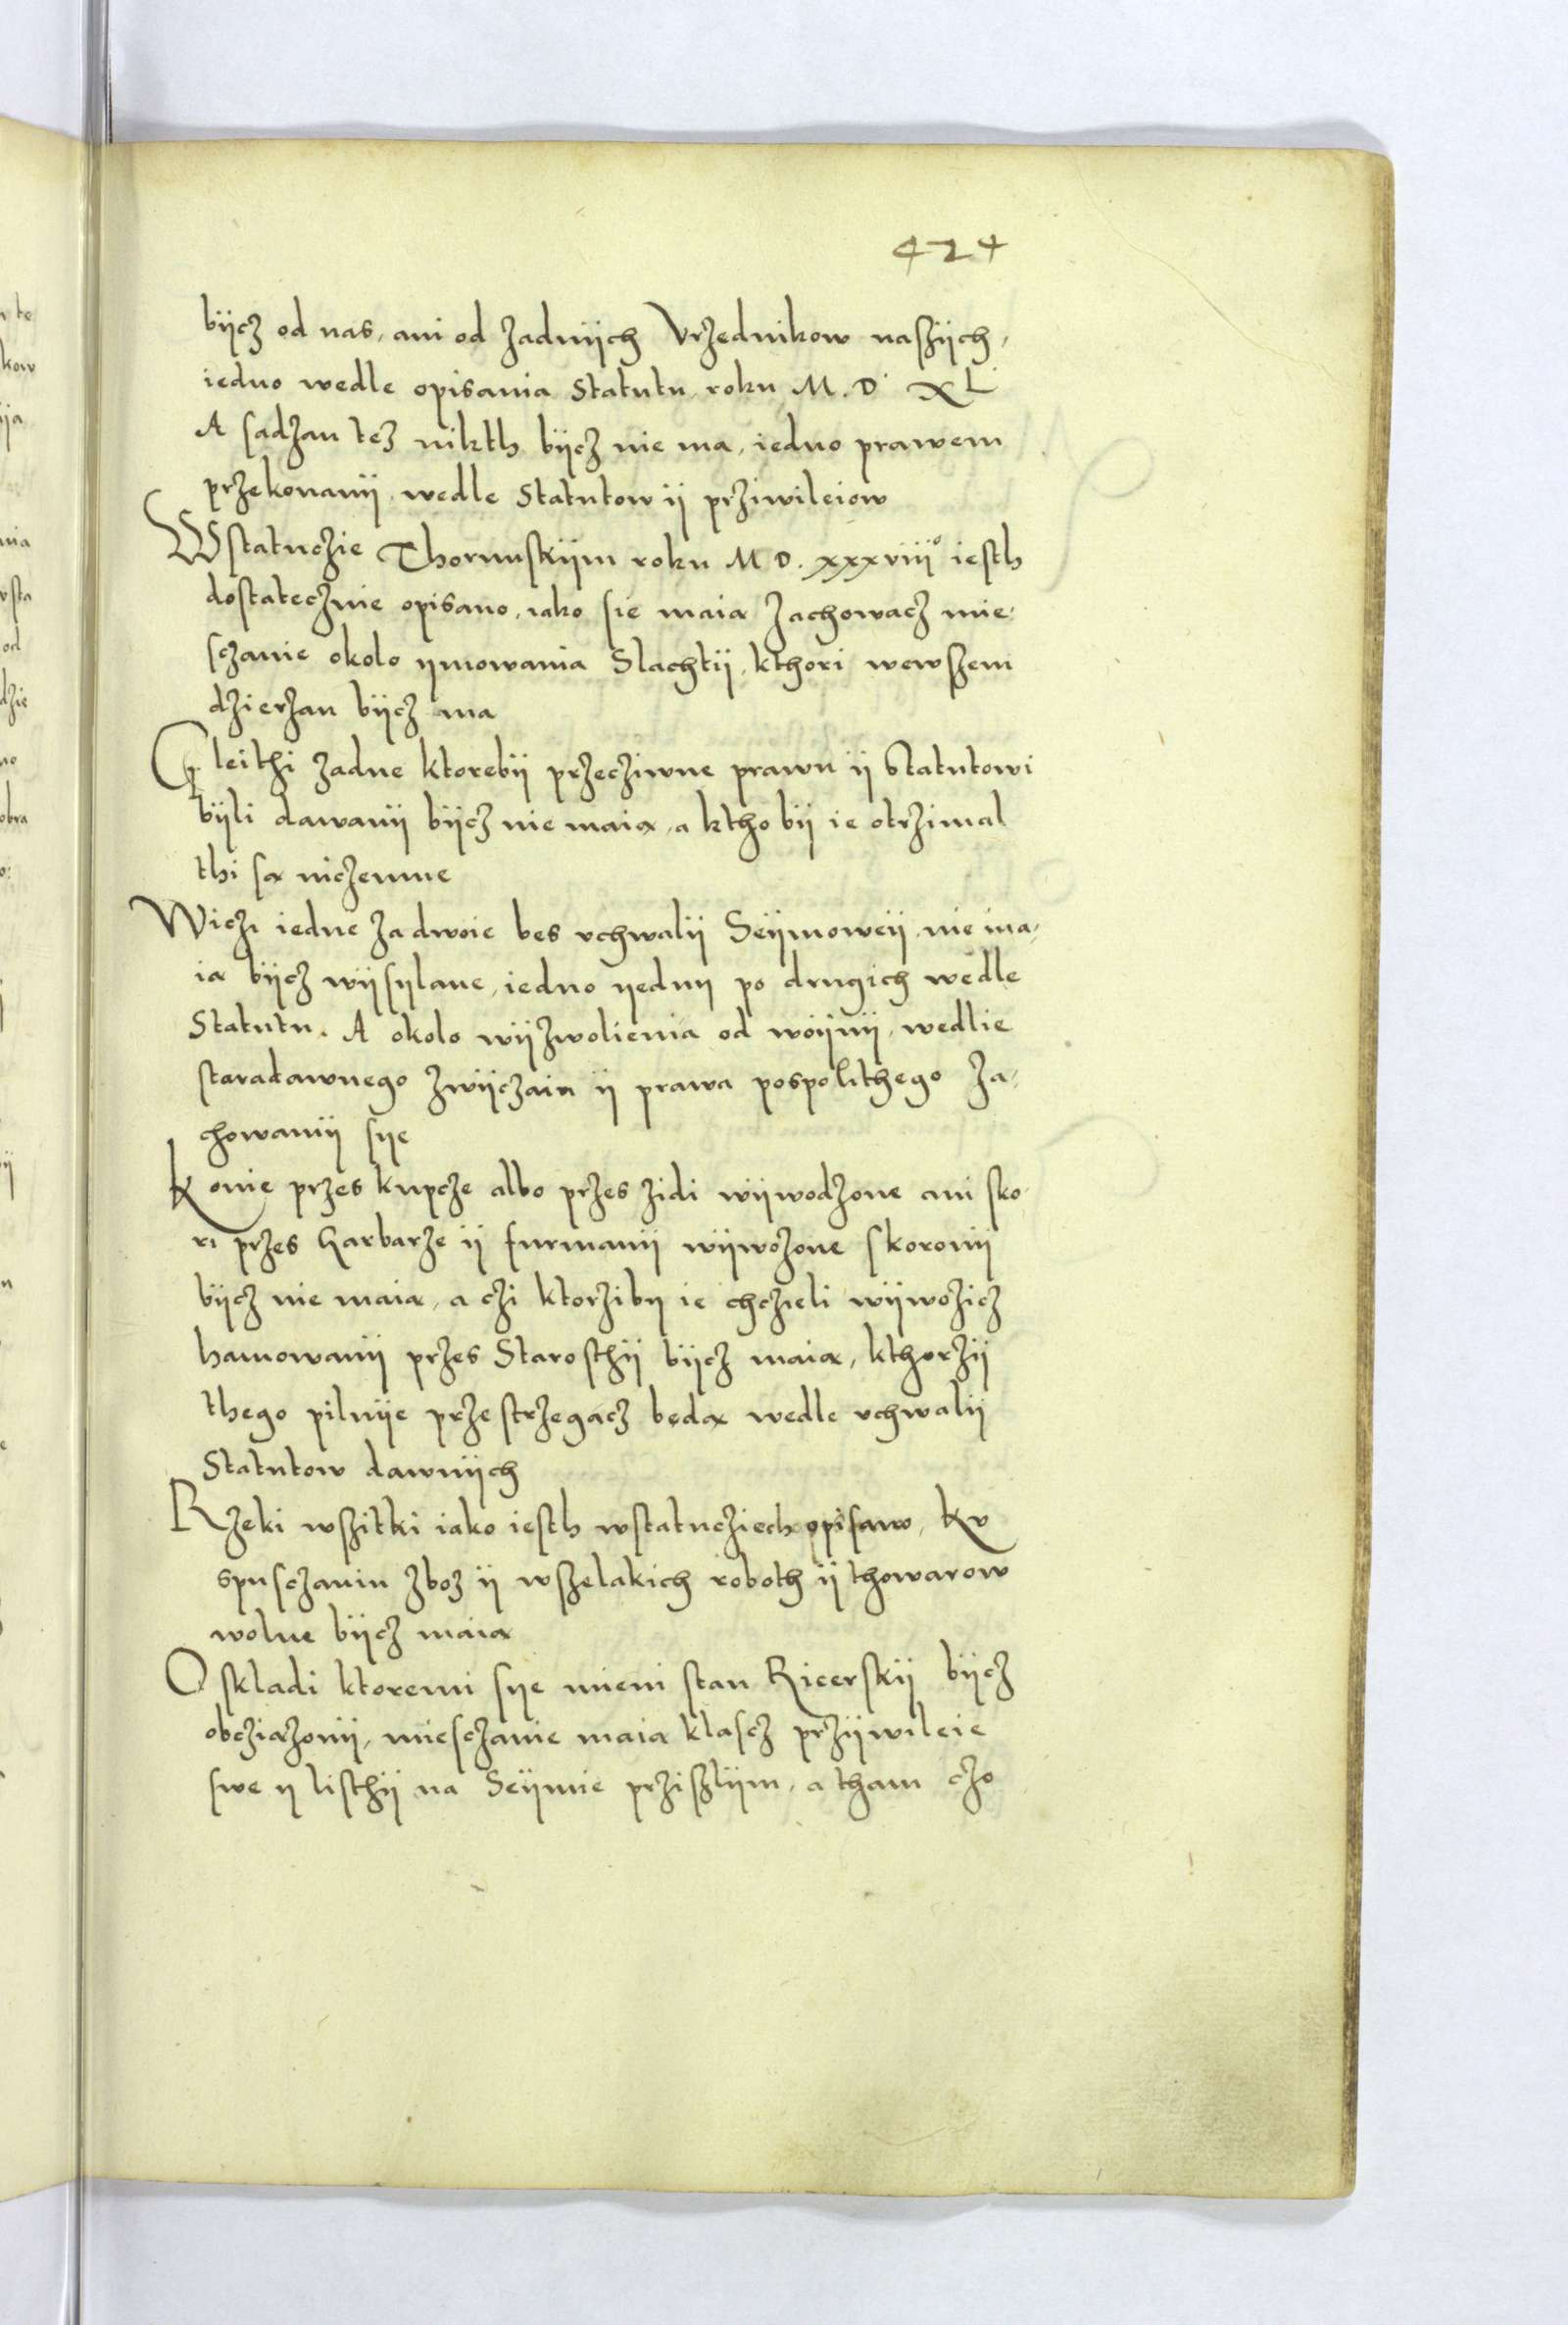 424
bÿcz od nas, ani od zadnÿch Vrzednikow naszÿch,
iedno wedle opisania Statutu, roku M. D. XL.
A sadzan tez nikth bÿcz nie ma, iedno prawem
przekonanÿ, wedle Statutow ÿ prziwileiow
W statuczie Thorunskÿm roku M D. xxxviii° iesth
dostatecznie opisano, iako sie maia zachowacz mie,
sczanie okolo ymowania Slachtÿ, kthori wewszem
dzierzan bÿcz ma
Gleithi zadne ktorebÿ przecziwne prawu ÿ Statutowi
bÿli dawanÿ bÿcz nie maia, a ktho bÿ ie otrzimal
thi sa niczemne
Wiczi iedne za dwoie bes vchwalÿ Seÿmoweÿ, nie ma,
ia bÿcz wÿsÿlane, iedno yedny po drugich wedle
Statutu. A okolo wÿzwolienia od woÿnÿ, wedlie
staradawnego zwÿczaiu ÿ prawa pospolithego za,
chowanÿ sye
Konie przes kupcze albo przes zidi wÿwodzone ani sko,
ri przes Garbarze ÿ furmanÿ wÿwozone skoronÿ
bÿcz nie maia, a czi ktorziby ie chczieli wÿwozicz
hamowanÿ przes Starosthÿ bÿcz maia, kthorzÿ
thego pilnÿe przestrzegacz będa wedle vchwalÿ
Statutow dawnÿch
Rzeki wszitki iako iesth wstatucziech opisano, kv
spusczaniu zboz ÿ wszelakich roboth ÿ thowarow
wolne bÿcz maia
O skladi ktoremi sye mieni stan Ricerskÿ bÿcz
obcziazonÿ, miesczanie maia klascz przÿwileie
swe y listhÿ na Seÿmie przislÿm, a tham czo